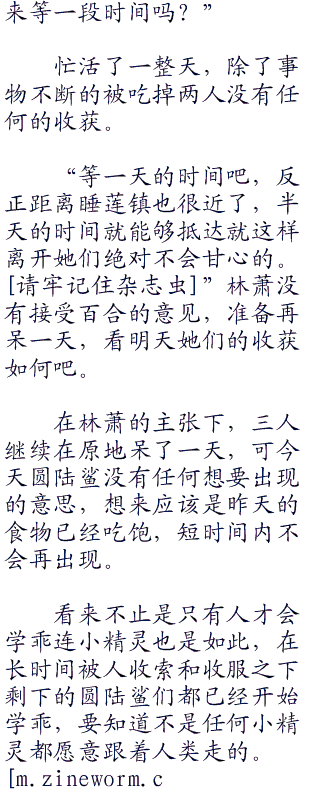 来等一段时间吗？”
忙活了一整天，除了事
物不断的被吃掉两人没有任
何的收获。
“等一天的时间吧，反
正距离睡莲镇也很近了，半
天的时间就能够抵达就这样
离开她们绝对不会甘心的。
[请牢记住杂志虫]”林萧没
有接受百合的意见，准备再
呆一天，看明天她们的收获
如何吧。
在林萧的主张下，三人
继续在原地呆了一天，可今
天圆陆鲨没有任何想要出现
的意思，想来应该是昨天的
食物已经吃饱，短时间内不
会再出现。
看来不止是只有人才会
学乖连小精灵也是如此，在
长时间被人收索和收服之下
剩下的圆陆鲨们都已经开始
学乖，要知道不是任何小精
灵都愿意跟着人类走的。
[m.zineworm.c